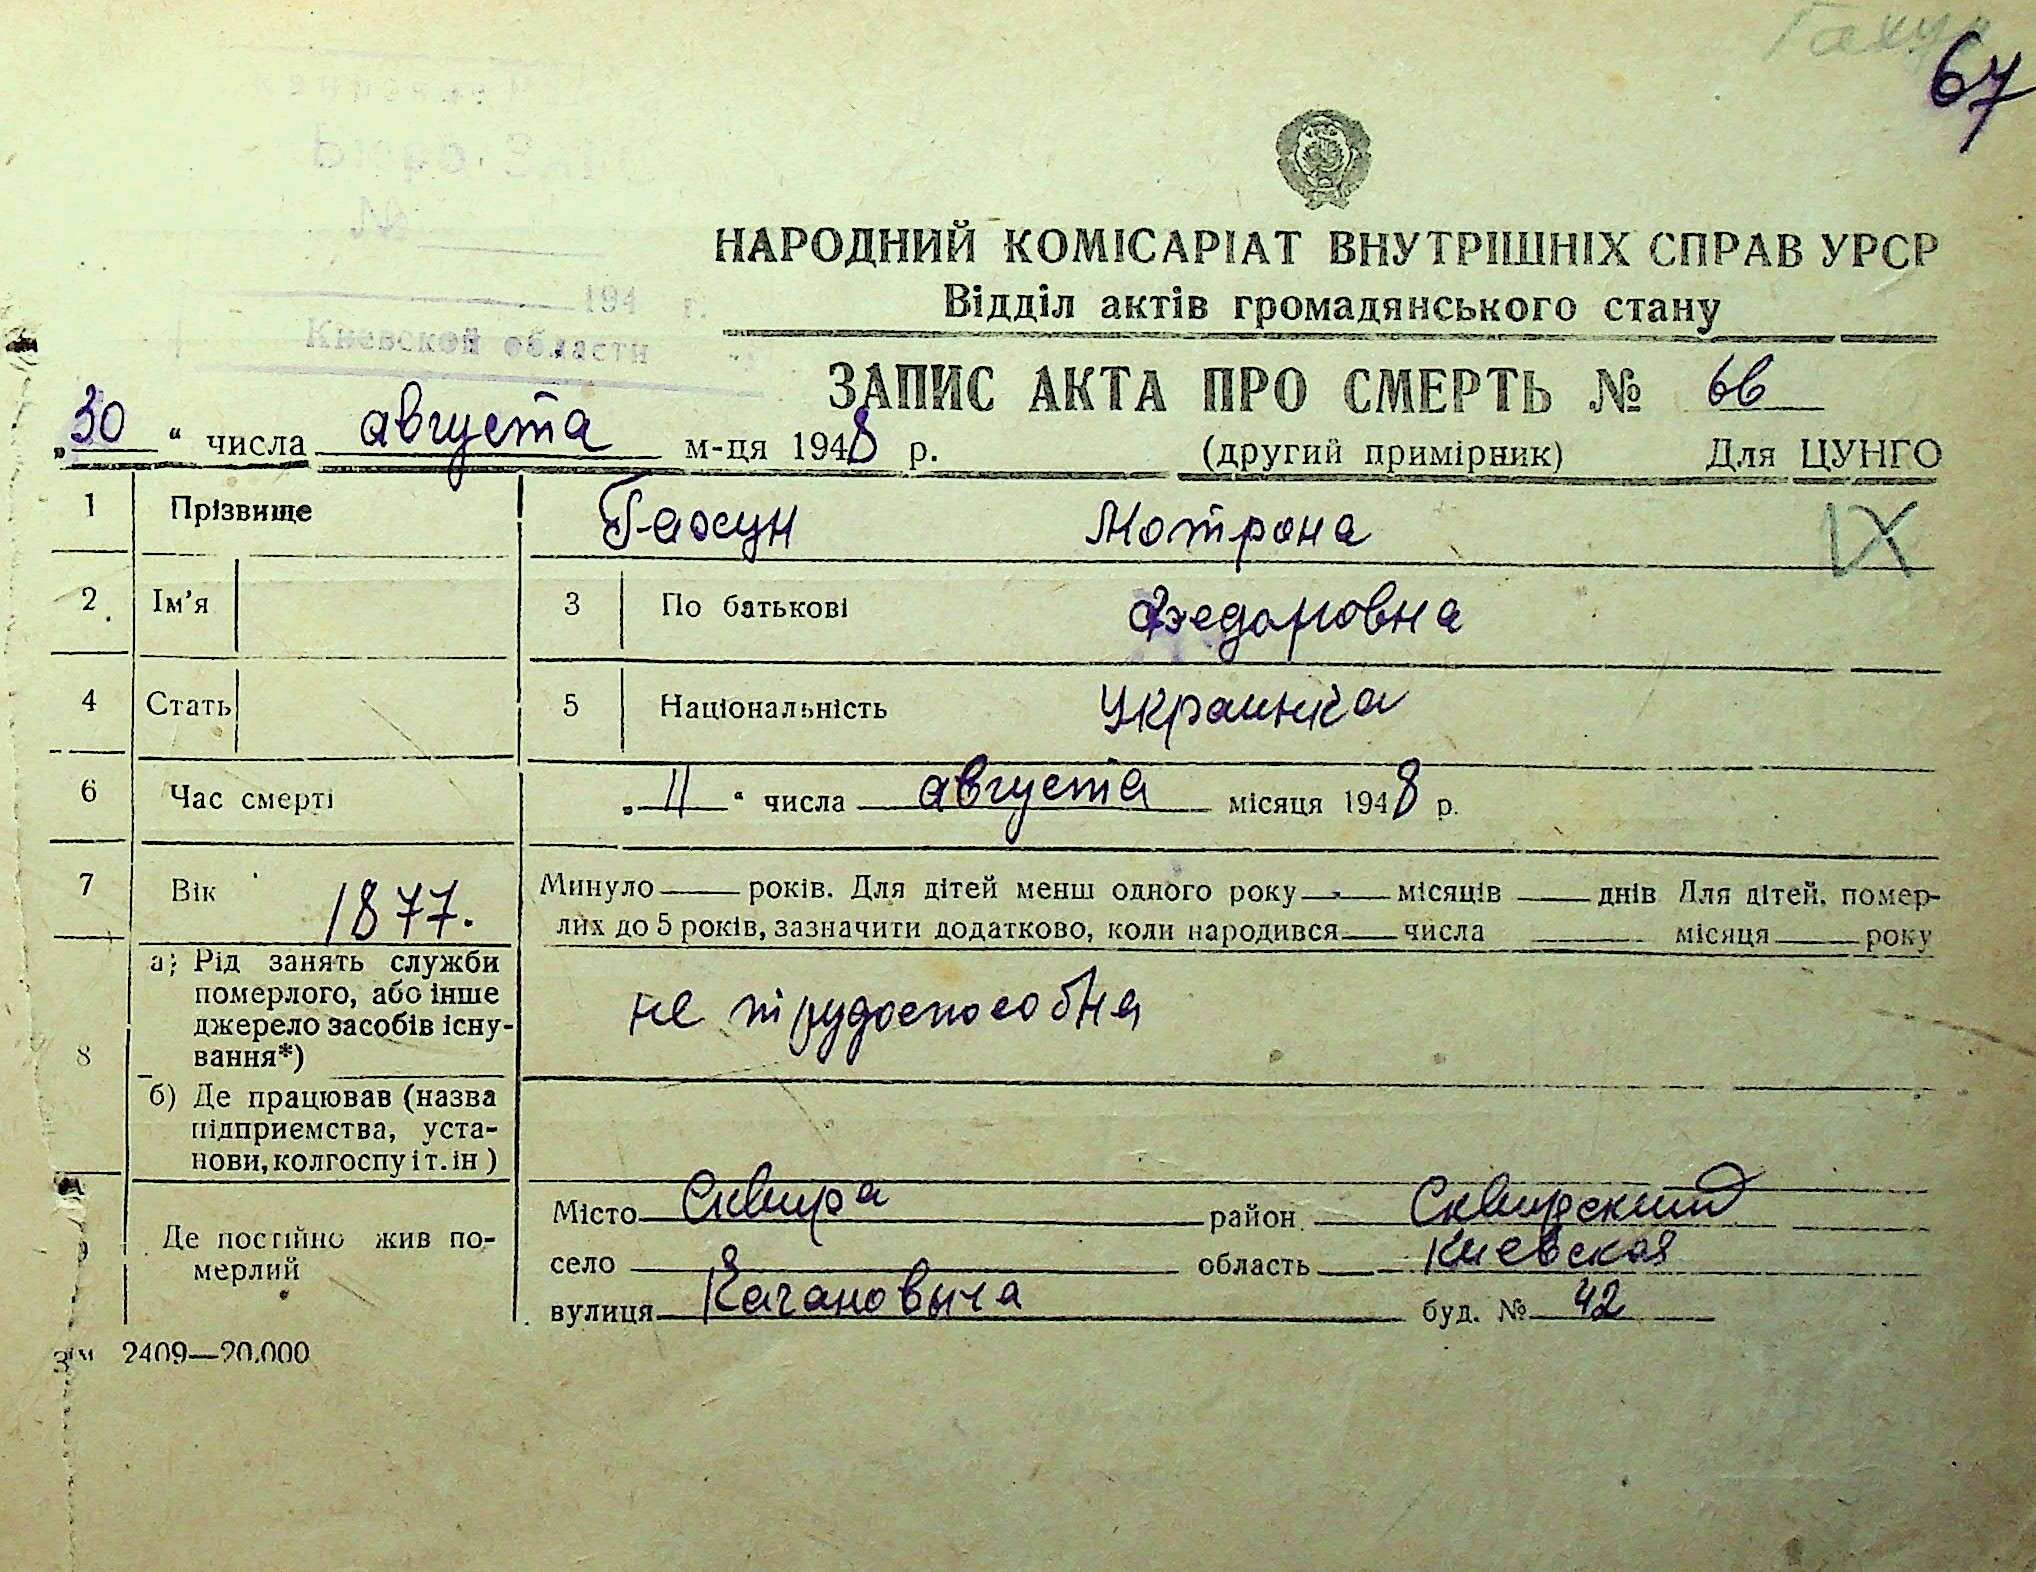 67
НАРОДНИЙ КОМІСАРІАТ ВНУТРІШНІХ СПРАВ УРСР
Відділ актів громадянського стану
194 г.
Киевской области
ЗАПИС АКТА ПРО СМЕРТЬ № 66
„30“ числа августа м-ця 1948 р. (другий примірник) Для ЦУНГО
1 Прізвище Гахун Мотрона IX
2 Ім'я 3 По батькові Федоровна
4 Стать 5 Національність Украинка
6 Час смерті „11“ числа августа місяця 1948 р.
7 Вік 1877. Минуло — років. Для дітей менш одного року — місяців — днів Для дітей, помер-
лих до 5 років, зазначити додатково, коли народився — числа — місяця — року
8 а) Рід занять служби
померлого, або інше
джерело засобів існу-
вання*)
не трудоспособна
б) Де працював (назва
підприємства, уста-
нови, колгоспу і т. ін)
9 Де постійно жив по-
мерлий
Місто Сквира район Сквирский
село область Киевская
вулиця Качановыча буд. № 42
Зам 2409—20.000